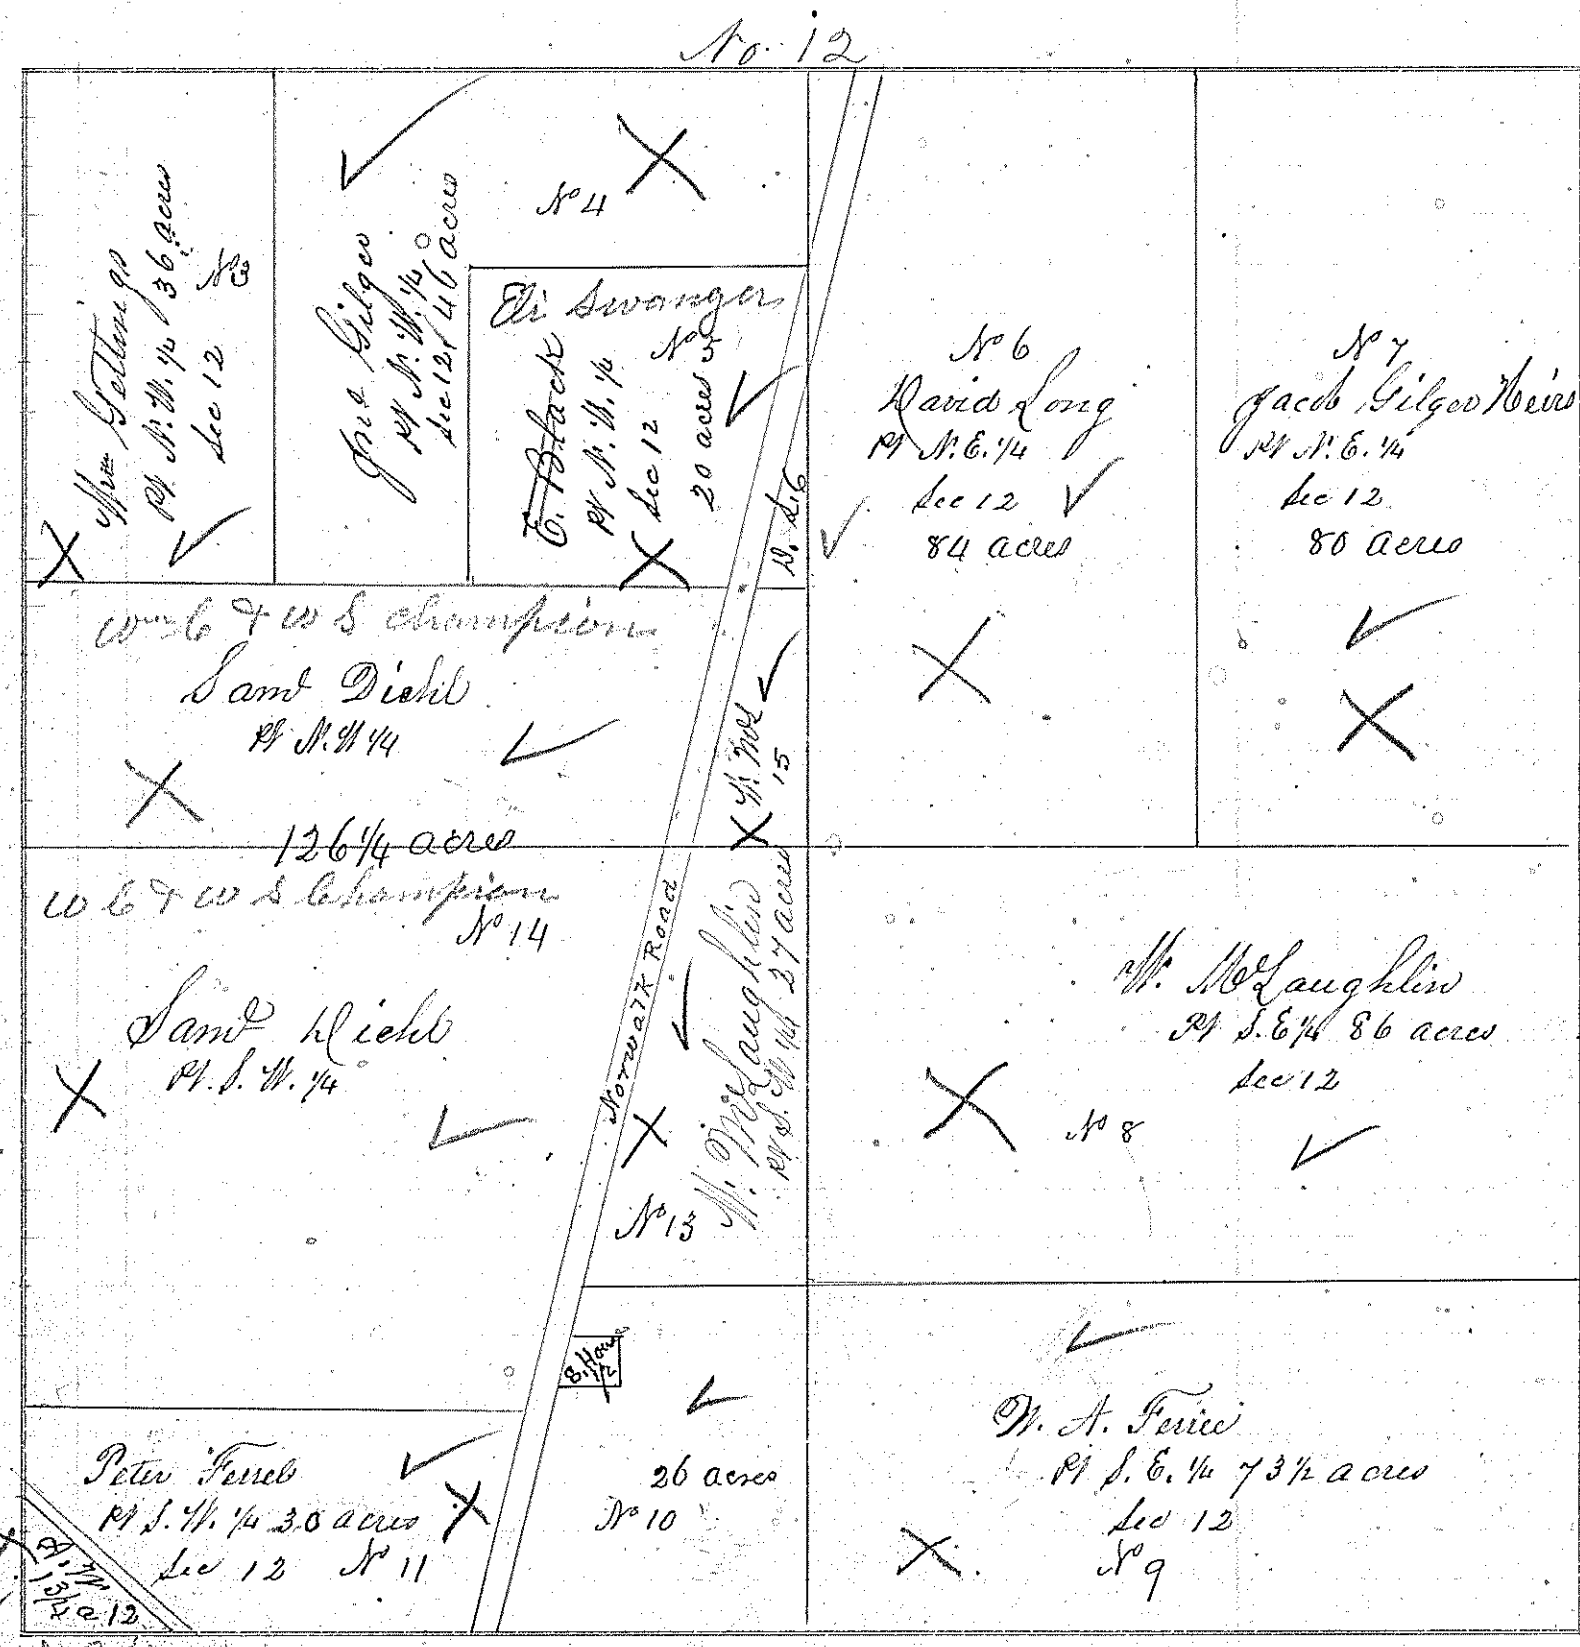 No. 12
Wm Gettings
Pt N. W. 1/4 36 acres
Sec 12
No 3
Jno Gilger
Pt N. W. 1/4
Sec 12 46 acres
No 4
Eli Swanger
E. Black
Pt N. W. 1/4
Sec 12
No 5
20 acres
D. L. 6
No 6
David Long
Pt N. E. 1/4
Sec 12
84 acres
No 7
Jacob Gilger Heirs
Pt N. E. 1/4
Sec 12
80 acres
Wm C & W S Champion
Saml Diehl
Pt N. W 1/4
126 1/4 acres
W. McL
15
W C & W S Champion
No 14
Saml Diehl
Pt. S. W. 1/4
Norwalk Road
W. McLaughlin
Pt S. W 1/4 27 acres
No 13
W. McLaughlin
Pt S. E 1/4 86 acres
Sec 12
No 8
S. House
1/2
26 acres
No 10
W. A. Ferree
Pt S. E. 1/4 73 1/2 acres
Sec 12
No 9
Peter Ferrel
Pt S. W. 1/4 30 acres
Sec 12 No 11
A. W
1 3/4 a 12